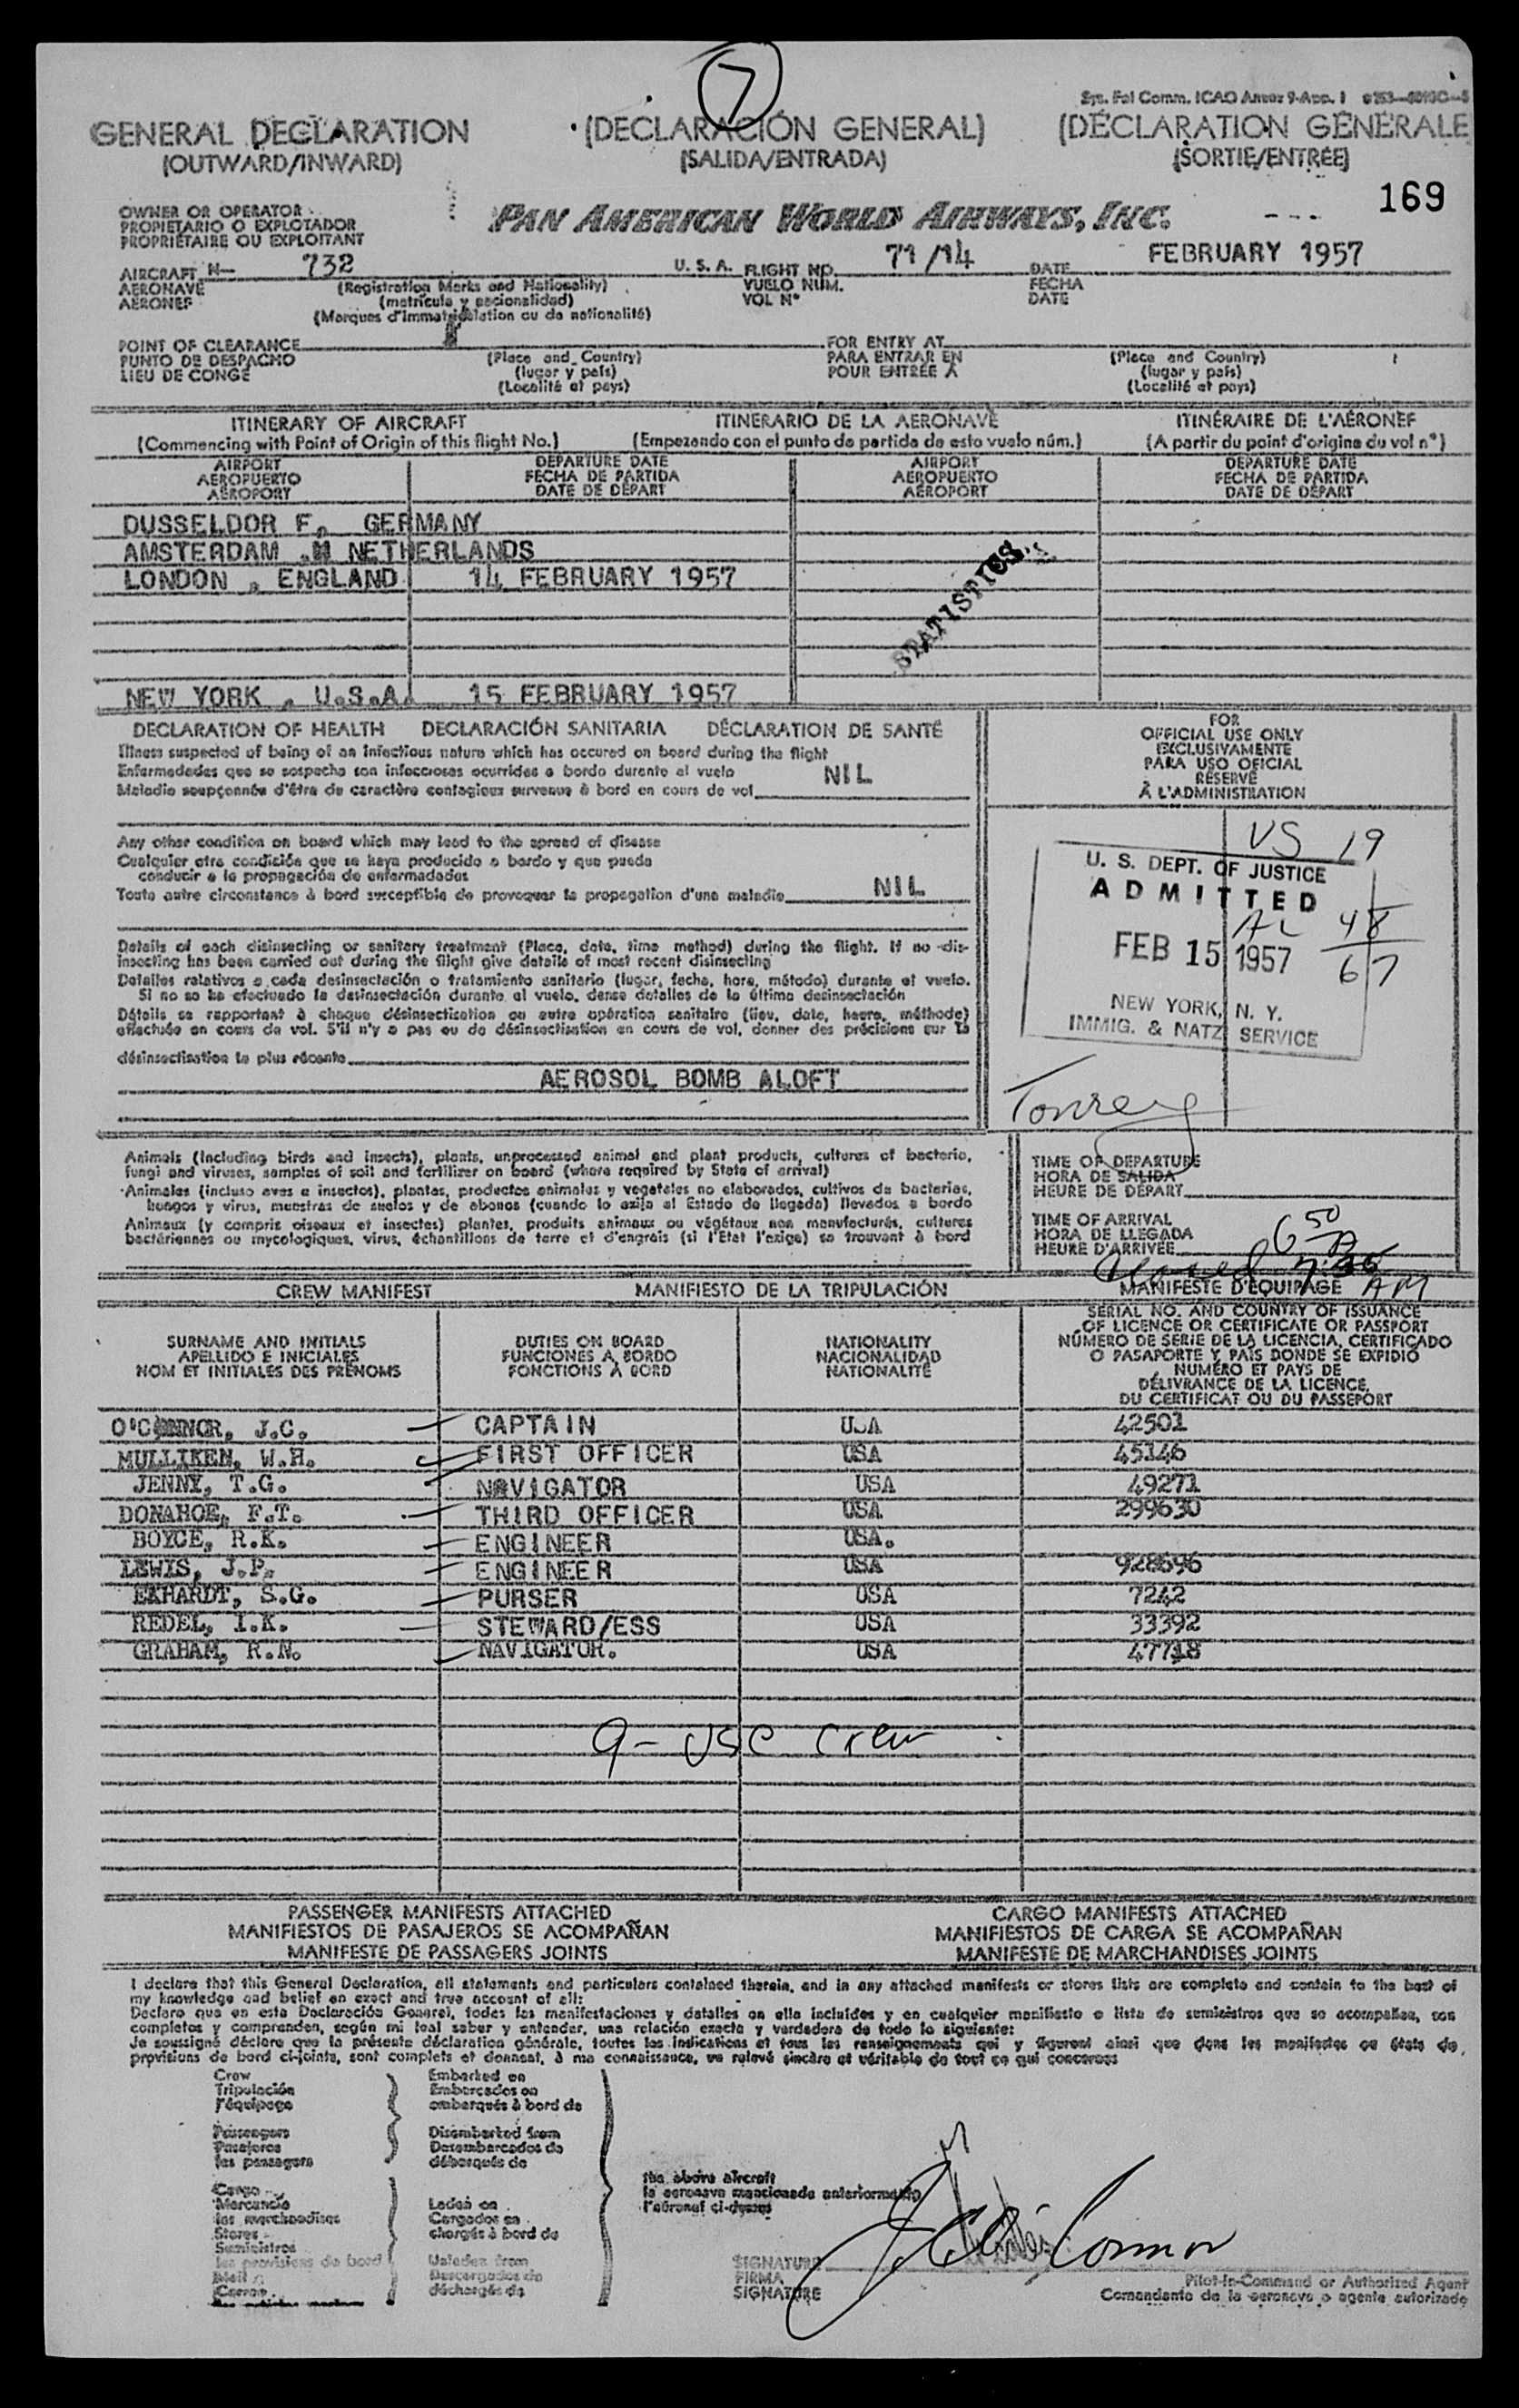 7
Sys. Fol Comm. ICAO Annex 9-App. 1
GENERAL DECLARATION (DECLARACIÓN GENERAL) (DÉCLARATION GÉNÉRALE
(OUTWARD/INWARD) (SALIDA/ENTRADA) (SORTIE/ENTRÉE)
169
OWNER OR OPERATOR
PROPIETARIO O EXPLOTADOR
PROPRIÉTAIRE OU EXPLOITANT
PAN AMERICAN WORLD AIRWAYS, INC.
AIRCRAFT N— 732 U. S. A. FLIGHT NO. 71/14 DATE FEBRUARY 1957
AERONAVE (Registration Marks and Nationality) VUELO NUM. FECHA
AÉRONEF (matrícula y nacionalidad) VOL N° DATE
(Marques d'immatriculation ou de nationalité)
POINT OF CLEARANCE FOR ENTRY AT
PUNTO DE DESPACHO (Place and Country) PARA ENTRAR EN (Place and Country)
LIEU DE CONGÉ (lugar y país) POUR ENTRÉE À (lugar y país)
(Localité et pays) (Localité et pays)
ITINERARY OF AIRCRAFT ITINERARIO DE LA AERONAVE ITINÉRAIRE DE L'AÉRONEF
(Commencing with Point of Origin of this flight No.) (Empezando con el punto de partida de esto vuelo núm.) (A partir du point d'origine du vol n°)
AIRPORT DEPARTURE DATE AIRPORT DEPARTURE DATE
AEROPUERTO FECHA DE PARTIDA AEROPUERTO FECHA DE PARTIDA
AÉROPORT DATE DE DÉPART AÉROPORT DATE DE DÉPART
DUSSELDOR F, GERMANY
AMSTERDAM , NETHERLANDS
LONDON , ENGLAND 14 FEBRUARY 1957
STATISTICS
NEW YORK , U.S.A. 15 FEBRUARY 1957
DECLARATION OF HEALTH DECLARACIÓN SANITARIA DÉCLARATION DE SANTÉ
Illness suspected of being of an infectious nature which has occured on board during the flight
Enfermedades que se sospecha son infecciosas ocurridas a bordo durante el vuelo NIL
Maladie soupçonnée d'être de caractère contagieux survenue à bord en cours de vol
FOR
OFFICIAL USE ONLY
EXCLUSIVAMENTE
PARA USO OFICIAL
RÉSERVÉ
À L'ADMINISTRATION
Any other condition on board which may lead to the spread of disease
Cualquier otra condición que se haya producido a bordo y que pueda
conducir a la propagación de enfermedades
Toute autre circonstance à bord susceptible de provoquer la propagation d'une maladie NIL
Details of each disinsecting or sanitary treatment (Place, date, time method) during the flight. If no dis-
insecting has been carried out during the flight give details of most recent disinsecting
Detalles relativos a cada desinsectación o tratamiento sanitario (lugar, fecha, hora, método) durante el vuelo.
Si no se ha efectuado la desinsectación durante el vuelo, dense detalles de la última desinsectación
Détails se rapportant à chaque désinsectisation ou autre opération sanitaire (lieu, date, heure, méthode)
effectuée en cours de vol. S'il n'y a pas eu de désinsectisation en cours de vol, donner des précisions sur la
désinsectisation la plus récente
AEROSOL BOMB ALOFT
VS 19
U. S. DEPT. OF JUSTICE
ADMITTED
AL 48
FEB 15 1957 67
NEW YORK, N. Y.
IMMIG. & NATZ SERVICE
Animals (Including birds and insects), plants, unprocessed animal and plant products, cultures of bacteria,
fungi and viruses, samples of soil and fertilizer on board (where required by State of arrival)
Animales (incluso aves e insectos), plantas, productos animales y vegetales no elaborados, cultivos de bacterias,
hongos y virus, muestras de suelos y de abonos (cuando lo exija el Estado de llegada) llevados a bordo
Animaux (y compris oiseaux et insectes) plantes, produits animaux ou végétaux non manufacturés, cultures
bactériennes ou mycologiques, virus, échantillons de terre et d'engrais (si l'Etat l'exige) se trouvant à bord
TIME OF DEPARTURE
HORA DE SALIDA
HEURE DE DÉPART
TIME OF ARRIVAL
HORA DE LLEGADA
HEURE D'ARRIVÉE 6 50 A
AM
CREW MANIFEST MANIFIESTO DE LA TRIPULACIÓN MANIFESTE D'ÉQUIPAGE
SURNAME AND INITIALS DUTIES ON BOARD NATIONALITY SERIAL NO. AND COUNTRY OF ISSUANCE
APELLIDO E INICIALES FUNCIONES A BORDO NACIONALIDAD OF LICENCE OR CERTIFICATE OR PASSPORT
NOM ET INITIALES DES PRÉNOMS FONCTIONS À BORD NATIONALITÉ NÚMERO DE SERIE DE LA LICENCIA, CERTIFICADO
O PASAPORTE Y PAÍS DONDE SE EXPIDIÓ
NUMÉRO ET PAYS DE
DÉLIVRANCE DE LA LICENCE,
DU CERTIFICAT OU DU PASSEPORT
O'CONNOR, J.C. CAPTAIN USA 42501
MULLIKEN, W.H. FIRST OFFICER USA 45146
JENNY, T.G. NAVIGATOR USA 49271
DONAHOE, F.T. THIRD OFFICER USA 299630
BOYCE, R.K. ENGINEER USA.
LEWIS, J.P. ENGINEER USA 928696
EKHARDT, S.G. PURSER USA 7242
REDEL, I.K. STEWARD/ESS USA 33392
GRAHAM, R.N. NAVIGATOR. USA 47718
9- USC Crew
PASSENGER MANIFESTS ATTACHED CARGO MANIFESTS ATTACHED
MANIFIESTOS DE PASAJEROS SE ACOMPAÑAN MANIFIESTOS DE CARGA SE ACOMPAÑAN
MANIFESTE DE PASSAGERS JOINTS MANIFESTE DE MARCHANDISES JOINTS
I declare that this General Declaration, all statements and particulars contained therein, and in any attached manifests or stores lists are complete and contain to the best of
my knowledge and belief an exact and true account of all:
Declaro que en esta Declaración General, todas las manifestaciones y detalles en ella incluidos y en cualquier manifiesto o lista de suministros que se acompañan, son
completos y comprenden, según mi leal saber y entender, una relación exacta y verdadera de todo lo siguiente:
Je soussigné déclare que la présente déclaration générale, toutes les indications et tous les renseignements qui y figurent ainsi que dans les manifestes ou états de
provisions de bord ci-joints, sont complets et donnent, à ma connaissance, un relevé sincère et véritable de tout ce qui concerne:
Crew Embarked on
Tripulación Embarcados en
l'équipage embarqués à bord de
Passengers Disembarked from
Pasajeros Desembarcados de
les passagers débarqués de
the above aircraft
la aeronave mencionada anteriormente
l'aéronef ci-dessus
Cargo
Mercancía Laden on
les marchandises Cargados en
Stores chargés à bord de
Suministros
les provisions de bord Unladen from
Mail Descargados de
Correo déchargés de
SIGNATURE J C O'Connor
FIRMA Pilot-in-Command or Authorized Agent
SIGNATURE Comandante de la aeronave o agente autorizado